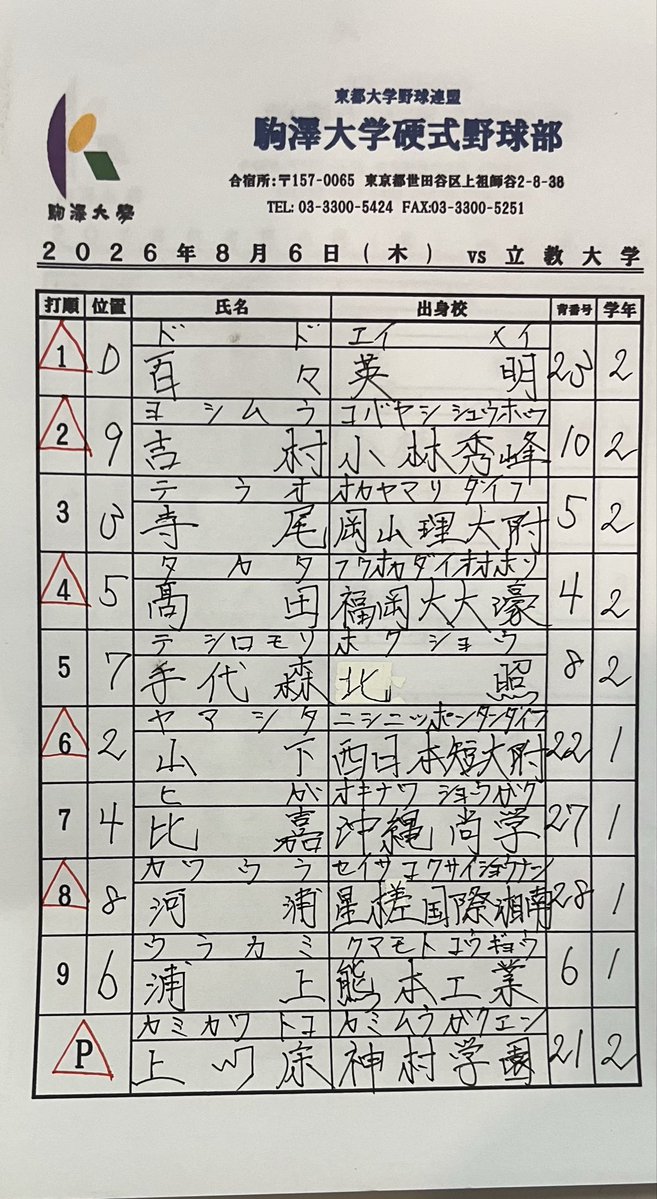 東都大学野球連盟
駒澤大学硬式野球部
合宿所:〒157-0065 東京都世田谷区上祖師谷2-8-38
TEL: 03-3300-5424 FAX:03-3300-5251
駒澤大學
2026年8月6日(木) vs 立教大学
打順 位置 氏名 出身校 背番号 学年
ドド エイメイ
1 D 百々 英明 2
ヨシムラ コバヤシシュウホウ
2 9 吉村 小林秀峰 10 2
テラオ オカヤマリダイフ
3 3 寺尾 岡山理大附 5 2
タカタ フクオカダイオオホリ
4 5 髙田 福岡大大濠 4 2
テシロモリ ホクショウ
5 7 手代森 北照 8 2
ヤマシタ ニシニッポンタンダイフ
6 2 山下 西日本短大附 22 1
ヒガ オキナワショウガク
7 4 比嘉 沖縄尚学 27 1
カワウラ セイサコクサイショウナン
8 8 河浦 星槎国際湘南 28 1
ウラカミ クマモトコウギョウ
9 6 浦上 熊本工業 6 1
カミカワトコ カミムラガクエン
P 上川床 神村学園 21 2